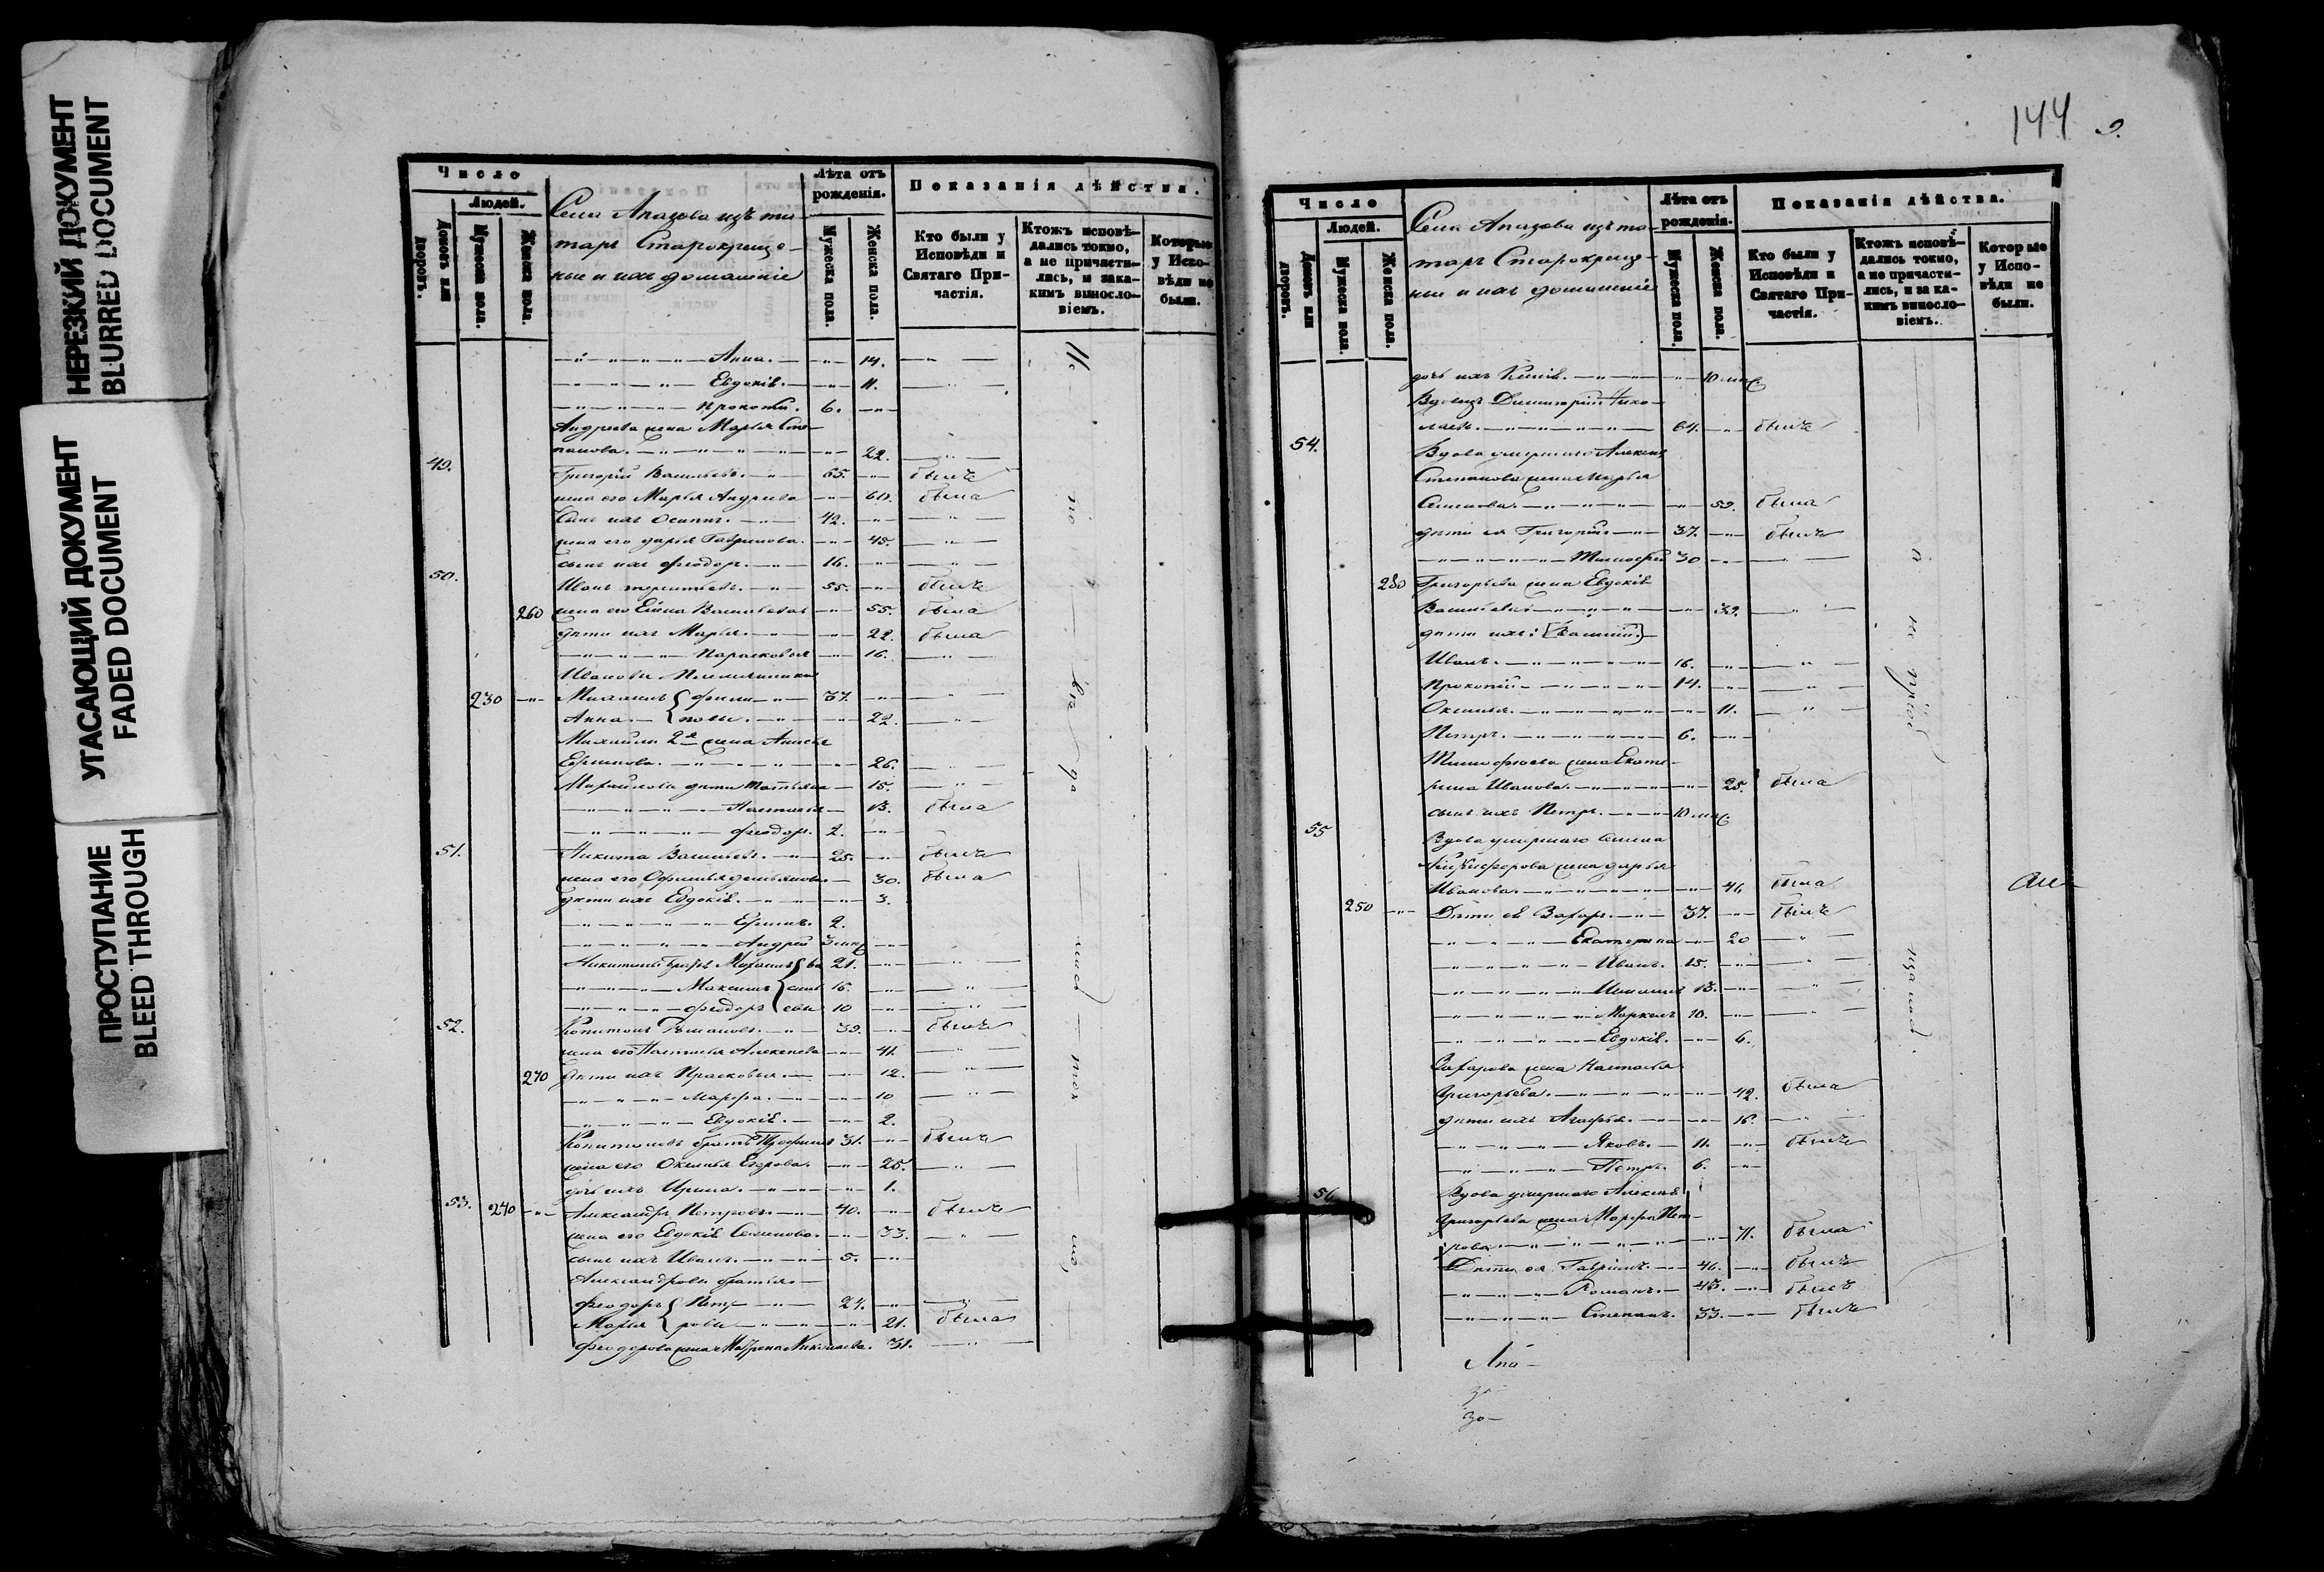 НЕРЕЗКИЙ ДОКУМЕНТ
BLURRED DOCUMENT
УГАСАЮЩИЙ ДОКУМЕНТ
FADED DOCUMENT
ПРОСТУПАНИЕ
BLEED THROUGH
Число
Людей.
Домовъ или дворовъ.
Мужеска пола.
Женска пола.
Села Апазова изъ та-
таръ Старокреще-
ные и ихъ домашніе
Лѣта отъ рожденія.
Мужеска пола.
Женска пола.
Показанія дѣйства.
Кто были у Исповѣди и Святаго При-частія.
Ктожъ исповѣ-дались токмо, а не причасти-лись, и зака-кимъ винosло-віемъ.
Которые у Испо-вѣди не были.
Анна. 14.
Евдокія. 11.
Прокопій. 6.
Андреева жена Марья Сте-
панова. 22.
49. Григорій Васильевъ. 65. былъ
жена его Марья Андреева 60. была
Сынъ ихъ Осипъ. 42.
жена его Дарья Гаврилова. 45.
сынъ ихъ Феодоръ. 16.
50. Иванъ Терентьевъ. 55. былъ
260 жена его Елена Васильева 55. была
дѣти ихъ Марья. 22. была
Парасковья 16.
Ивановы Племянники
230 Михаилъ Филип 37.
Анна повы. 22.
Михайлы 2я жена Анисья
Ефимова. 26.
Михайловы дѣти Татьяна 15.
Настасья 13. была
Феодоръ. 2.
51. Никита Васильевъ. 25. былъ
жена его Офимья Демьянова 30. была
дѣти ихъ Евдокія. 3.
Ефимъ. 2.
Андрей 3 мѣс
Никитины братья Михаилъ Ва 21.
Максимъ силь 16.
Феодоръ евы 10
52. Капитонъ Романовъ. 39. былъ
жена его Настасья Алексеева 41.
270 дѣти ихъ Прасковья. 12.
Марфа. 10
Евдокія. 2.
Капитоновъ братъ Трофимъ 31. былъ
жена его Оксинья Егорова. 25.
дочь ихъ Ирина. 1.
53. 240 Александръ Петровъ. 40. былъ
жена его Евдокія Семенова. 33.
сынъ ихъ Иванъ. 5.
Александровы братья
Феодоръ Пет 24.
Марья ровы 21. была
Феодорова жена Матрона Николаева. 31.
144
Число
Людей.
Домовъ или дворовъ.
Мужеска пола.
Женска пола.
Села Апазова изъ та-
таръ Старокреще-
ные и ихъ домашніе
Лѣта отъ рожденія.
Мужеска пола.
Женска пола.
Показанія дѣйства.
Кто были у Исповѣди и Святаго При-частія.
Ктожъ исповѣ-дались токмо, а не причасти-лись, и за ка-кимъ винosло-віемъ.
Которые у Испо-вѣди не были.
дочь ихъ 10 мѣс
Вдовецъ Димитрій Нико-
лаевъ. 64. былъ
54. Вдова умершаго Алексея
Степанова жена Марья
Семенова 59. была
дѣти ея Григорій 37. былъ
Тимофей 30
280 Григорьева жена Евдокія
Васильева 39.
дѣти ихъ: [Василій]
Иванъ. 16.
Прокопій 14.
Оксинья. 11.
Петръ. 6.
Тимофеева жена Екате-
рина Иванова. 25. была
сынъ ихъ Петръ. 10 мѣс
55 Вдова умершаго Семена
Никифорова жена Дарья
Иванова. 41. была
250 Дѣти ея Захаръ. 37. былъ
Екатерина 20
Иванъ. 15.
13.
Маркелъ 10.
Евдокія. 6.
Захарова жена Настасья
Григорьева. 42. была
дѣти ихъ Агафья. 16.
Яковъ. 11. былъ
Петръ. 6.
56. Вдова умершаго Алексея
Григорьева жена Марфа Пет-
рова 71. была
Дѣти ея Гаврилъ. 46. былъ
Романъ. 43. былъ
Степанъ. 33. былъ
Апа-
зо-